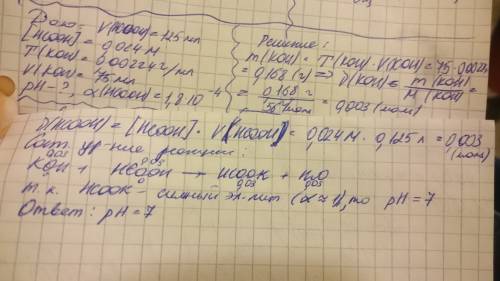 Дано: V(HCOOH) = 125 мл
[HCOOH] = 0,024 М
T(KOH) = 0,00224 г/мл
V(KOH) = 75 мл
pH - ?, α(HCOOH) = 1,8·10⁻⁴
Решение:
m(KOH) = T(KOH) · V(KOH) = 75 · 0,00224
= 0,168 (г) => ν(KOH) = m(KOH) / M(KOH) =
= 0,168 г / 56 г/моль = 0,003 (моль)
ν(HCOOH) = [HCOOH] · V(HCOOH) = 0,024 М · 0,125 л = 0,003 (моль)
Сост. ур-ние реакции:
0,003 0,003
KOH + HCOOH → HCOOK + H₂O
0,003 0,003
т.к. HCOOK - сильный эл-лит (α ≈ 1), то pH = 7
Ответ: pH = 7